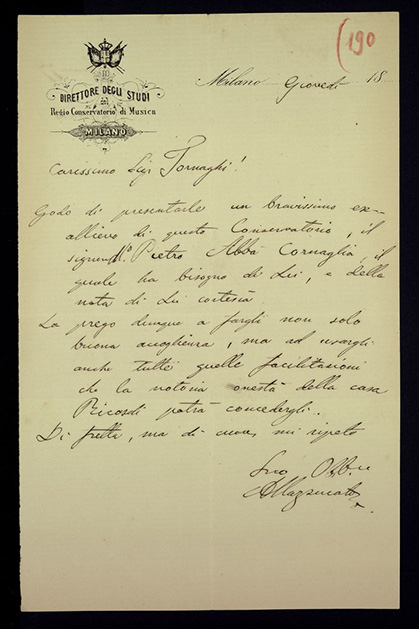 (190
DIRETTORE DEGLI STUDI
del
Regio Conservatorio di Musica
MILANO
Milano Giovedì 18
Carissimo Sigr Tornaghi!
Godo di presentarle un bravissimo ex-
allievo di questo Conservatorio, il
signor Mo Pietro Abbà Cornaglia, il
quale ha bisogno di Lei, e della
nota di Lei cortesia.
La prego dunque a fargli non solo
buona accoglienza, ma ad usargli
anche tutte quelle facilitazioni
che la notoria onestà della casa
Ricordi potrà concedergli.
Di fretta, ma di cuore, mi ripeto
Suo Obb.
AMazzucato